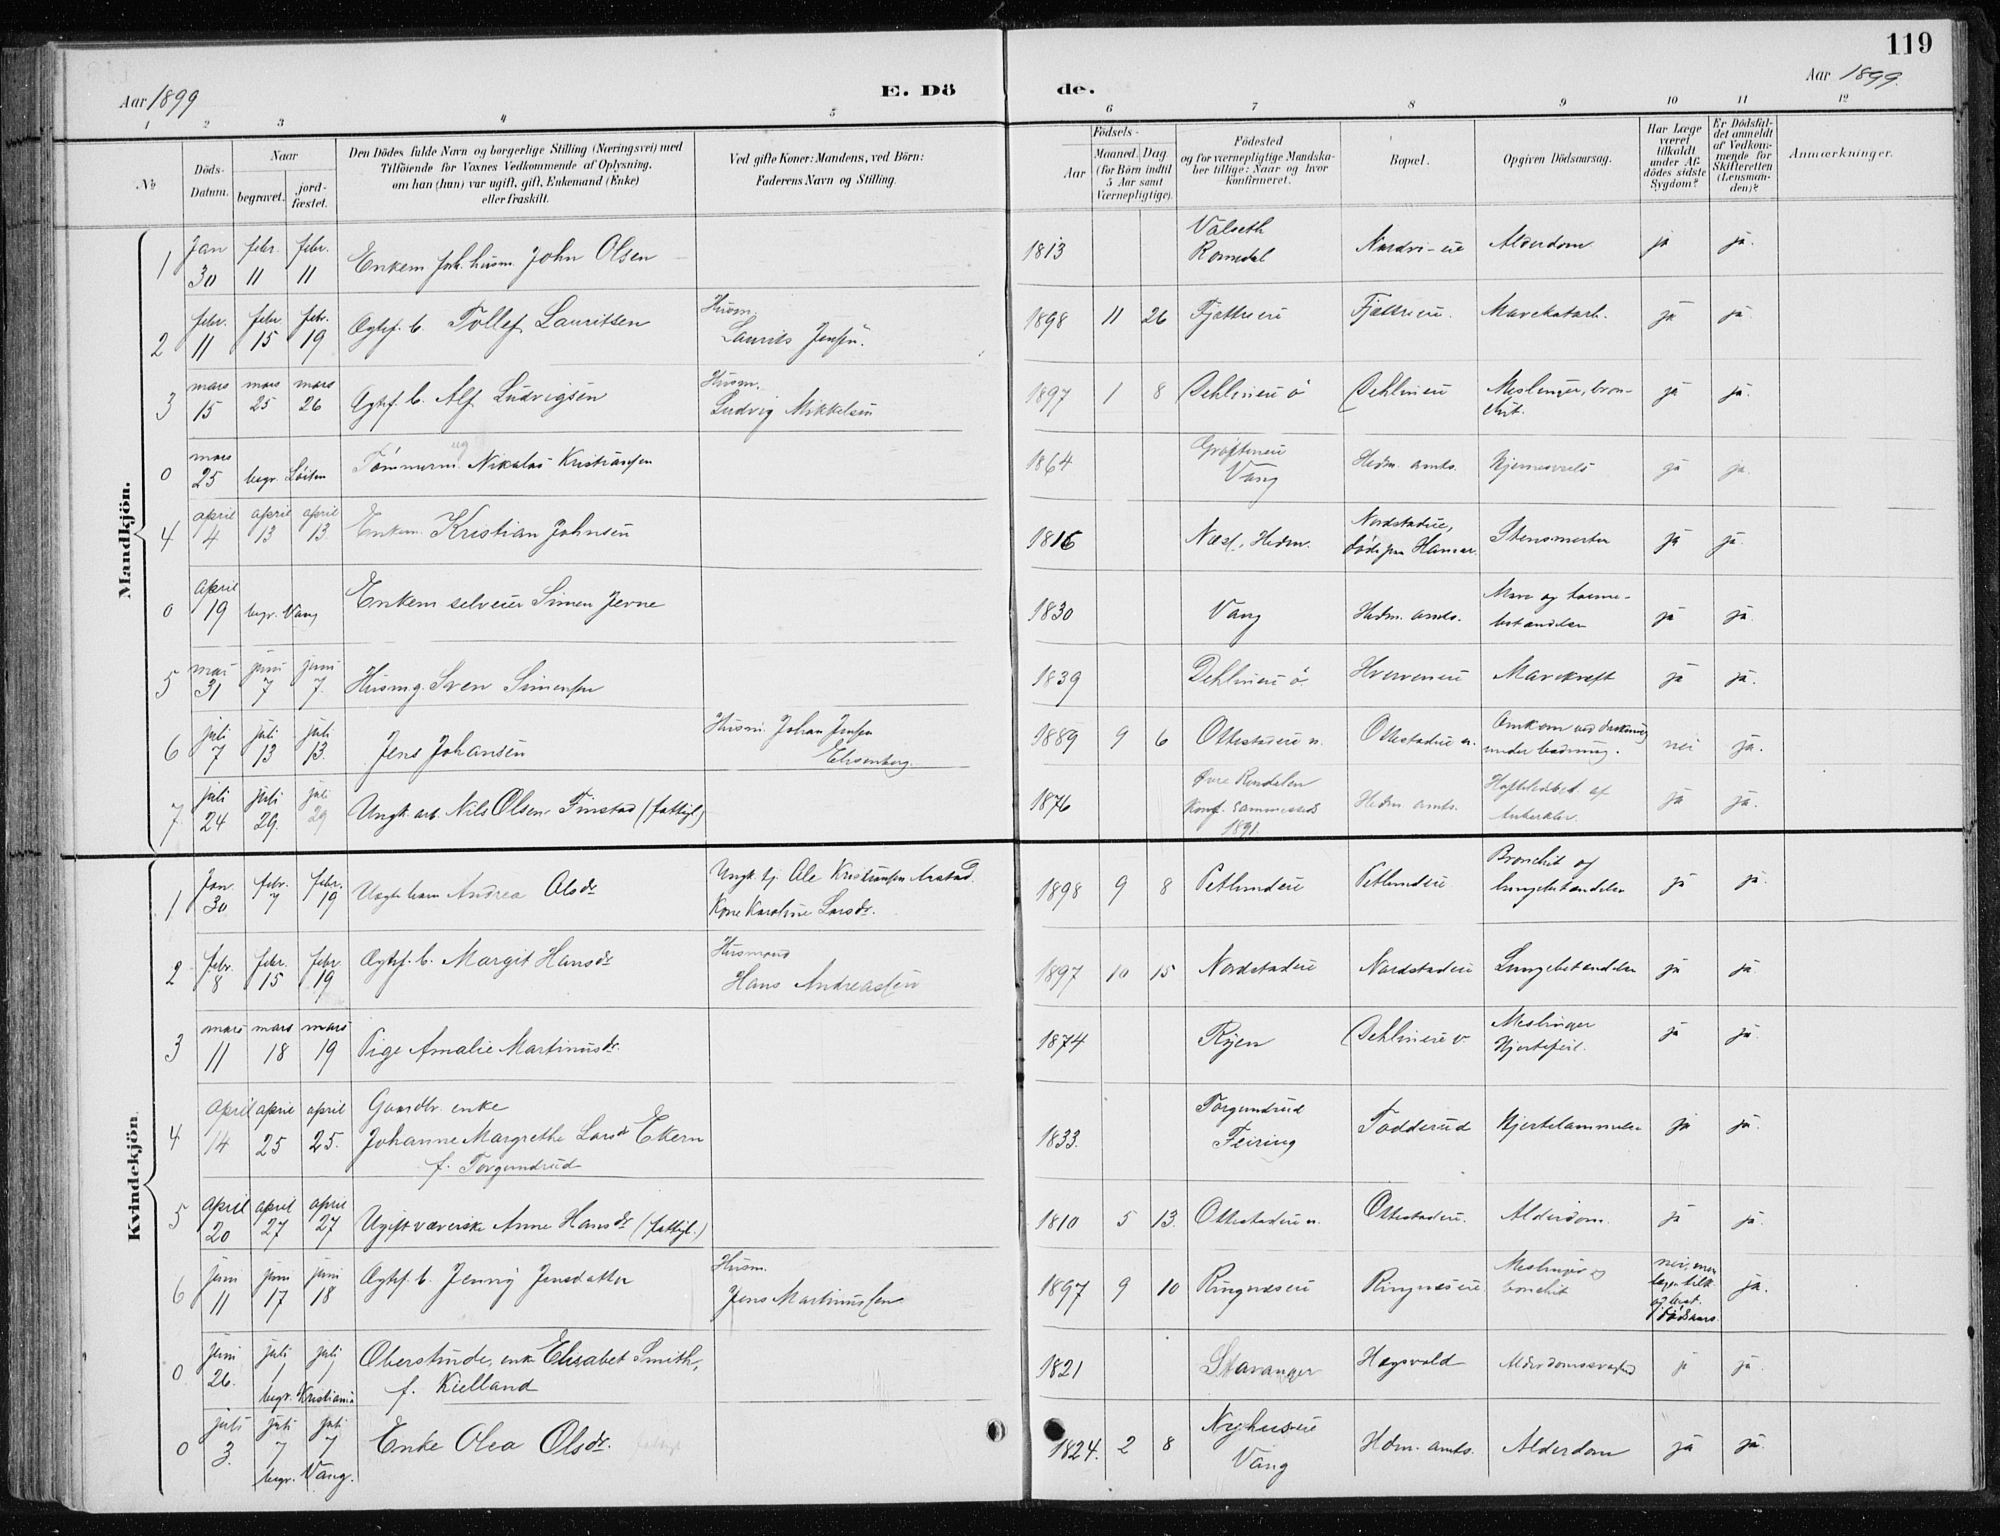 119
Aar 1899
E. Dö
de.
Aar 1899.
1 2 3 4 5 6 7 8 9 10 11 12
No
Döds-
Datum.
Naar
begravet.
jord-
fæstet.
Den Dödes fulde Navn og borgerlige Stilling (Næringsvei) med
Tilföiende for Voxnes Vedkommende af Oplysning,
om han (hun) var ugift, gift, Enkemand (Enke)
eller fraskilt.
Ved gifte Koner: Mandens, ved Börn:
Faderens Navn og Stilling.
Födsels-
Aar
Maaned. Dag.
(for Börn indtil
5 Aar samt
Værnepligtige).
Födested
og for værnepligtige Mandska-
ber tillige: Naar og hvor
konfirmeret.
Bopæl.
Opgiven Dödsaarsag.
Har Læge
været
tilkaldt
under Af-
dödes sidste
Sygdom?
Er Dödsfal-
det anmeldt
af Vedkom-
mende for
Skifteretten
(Lensman-
den)?
Anmærkninger.
Mandkjön.
1 Jan 30 febr. 11 febr. 11 Enkem. John Olsen 1813 Valseth Romedal Alderdom ja ja.
2 febr. 11 febr. 15 febr. 19 Ægtef. b. Tollef Lauritsen Husm. Laurits Jensen. 1898 11 26 Fjættreie Fjættreie. Mavekatarh. ja ja.
3 mars 15 mars 25 mars 26 Ægtef. b. Alf Ludvigsen Husm. Ludvig Mikkelsen 1897 1 8 Dehlineie ö Dehlineie Meslinger, bron-
chit. ja ja.
0 mars 25 begr. Löiten Tömmerm. ug Nikolai Kristiansen 1864 Vang Hedm. amts. ja ja.
4 april 4 april 13 april 13. Enkem. Kristian Johnsen 1816 Næs, Hedm. Nordstadeie,
döde paa Hamar. Stensmerter ja ja.
0 april 19 begr. Vang Enkem selveier Simen Jerne 1830 Vang Hedm. amts. Mave og tarme-
betændelse ja ja.
5 mai 31 juni 7 juni 7. Husm.g. Sven Simensen 1839 Dehlineie ö Hverveneie Mavekræft ja ja.
6 juli 7 juli 13 juli 13. Jens Johansen Husm. Johan Jensen
Elisenberg. 1889 9 6 Ottestadeie n. Ottestadeie n. Omkom ved drukning
under badning. nei ja.
7 juli 24 juli 29. juli 29 Ungk. arb. Nils Olsen Finstad (fattigl.) 1876 Övre Rendalen
Konf. sammesteds
1891. Hedm. amts. Hofteledbet. af
tuberkler. ja ja.
Kvindekjön.
1 Jan. 30 febr. 7 febr. 19 Uægte barn Andrea Olsdr Ungk. tj. Ole Kristiansen Arstad.
Kone Karoline Larsdr. 1898 9 8 Petlundeie Petlundeie Bronchit og
lungebetændelse ja ja.
2 febr. 8 febr. 15 febr. 19 Ægtef. b. Margit Hansdr Husmand
Hans Andreassen 1897 10 15 Nordstadeie Nordstadeie Lungebetændelse ja ja.
3 mars 11 mars 18 mars 19 Pige Amalie Martinusdr. 1874 Ryen Dehlineie v. Meslinger
Hjertefeil. ja ja.
4 april 14 april 25 april 25. Gaardbr. enke
Johanne Margrethe Larsdr Ekern
f. Torgundrud 1833. Torgundrud
Feiring Todderud Hjertelammelse ja ja.
5 april 20 april 27 april 27 Ugift væverske Anne Hansdr (fattigl.) 1810 5 13. Ottestadeie n. Ottestadeie. Alderdom. ja ja.
6 juni 11 juni 17 juni 18 Ægtef. b. Jenny Jensdatter Husm.
Jens Martinussen 1897 9 10 Ringnæseie Ringnæseie Meslinger og
bronchit nei, men
lægen tilk.
og best.
dödsaars. ja.
0 juni 26. juli 1 juli 1 begr. Kristiania Oberstinde, enke Elisabet Smith,
f. Kielland 1821 Stavanger Hogsvold Alderdomssvaghed ja ja.
0 juli 3. juli 7 juli 7 begr. Vang. Enke Olea Olsdr. fattigl. 1824. 2 8 Nyhuseie
Vang Hdm. amts. Alderdom ja ja.